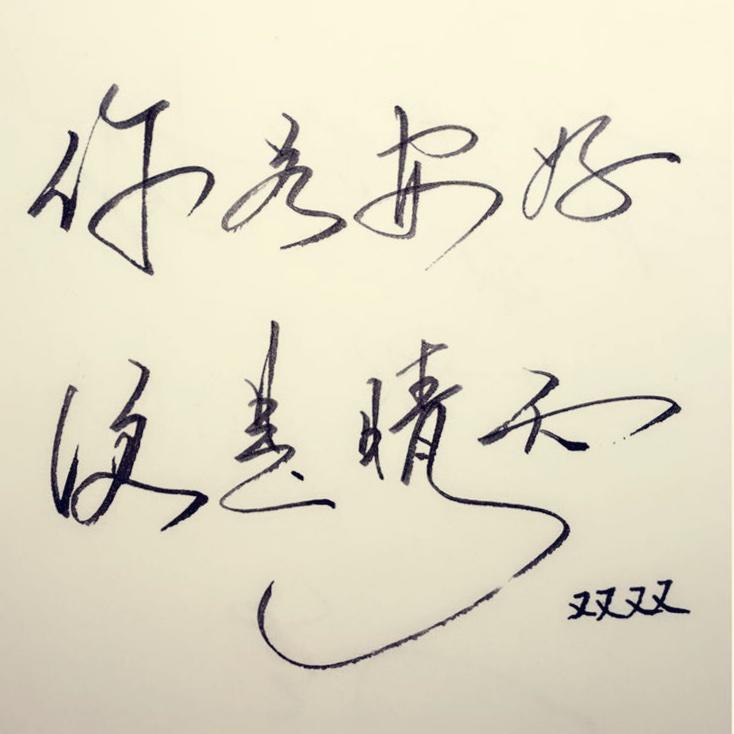 你若安好
便是晴天
双双